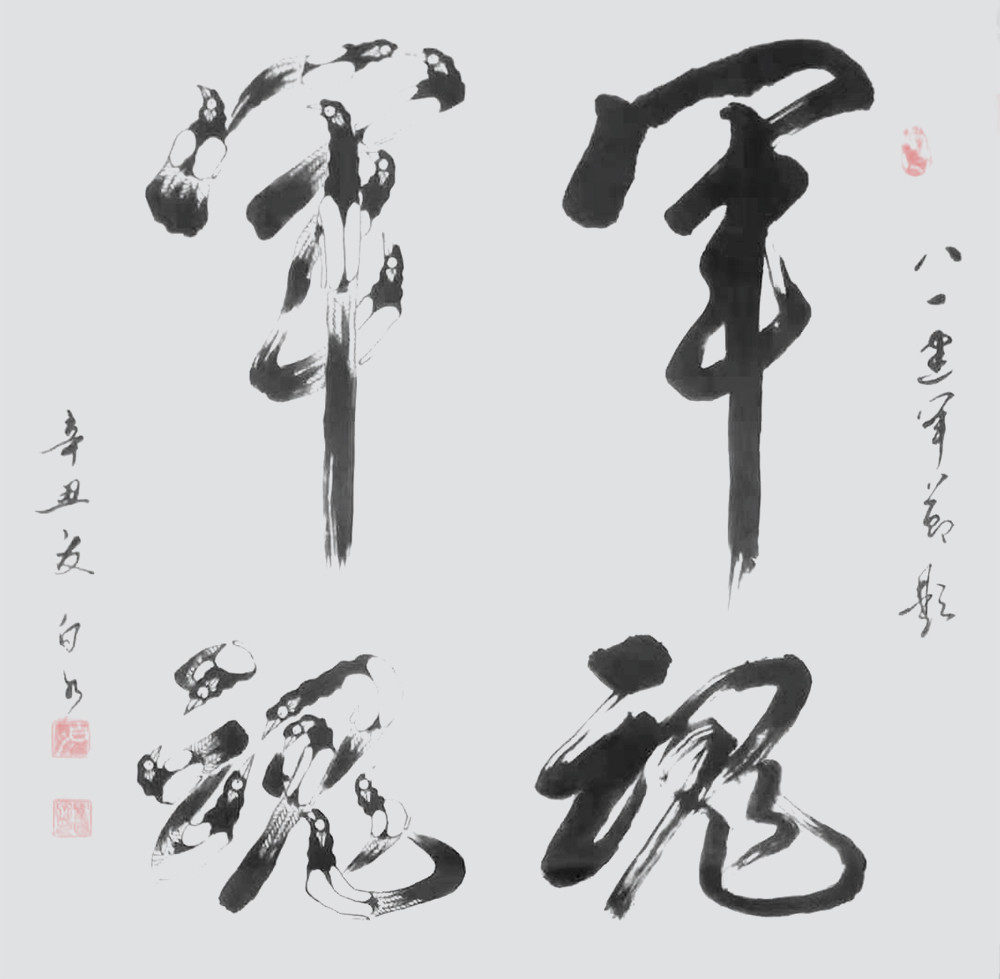 八一建军節题
军魂
军魂
辛丑夏 白水